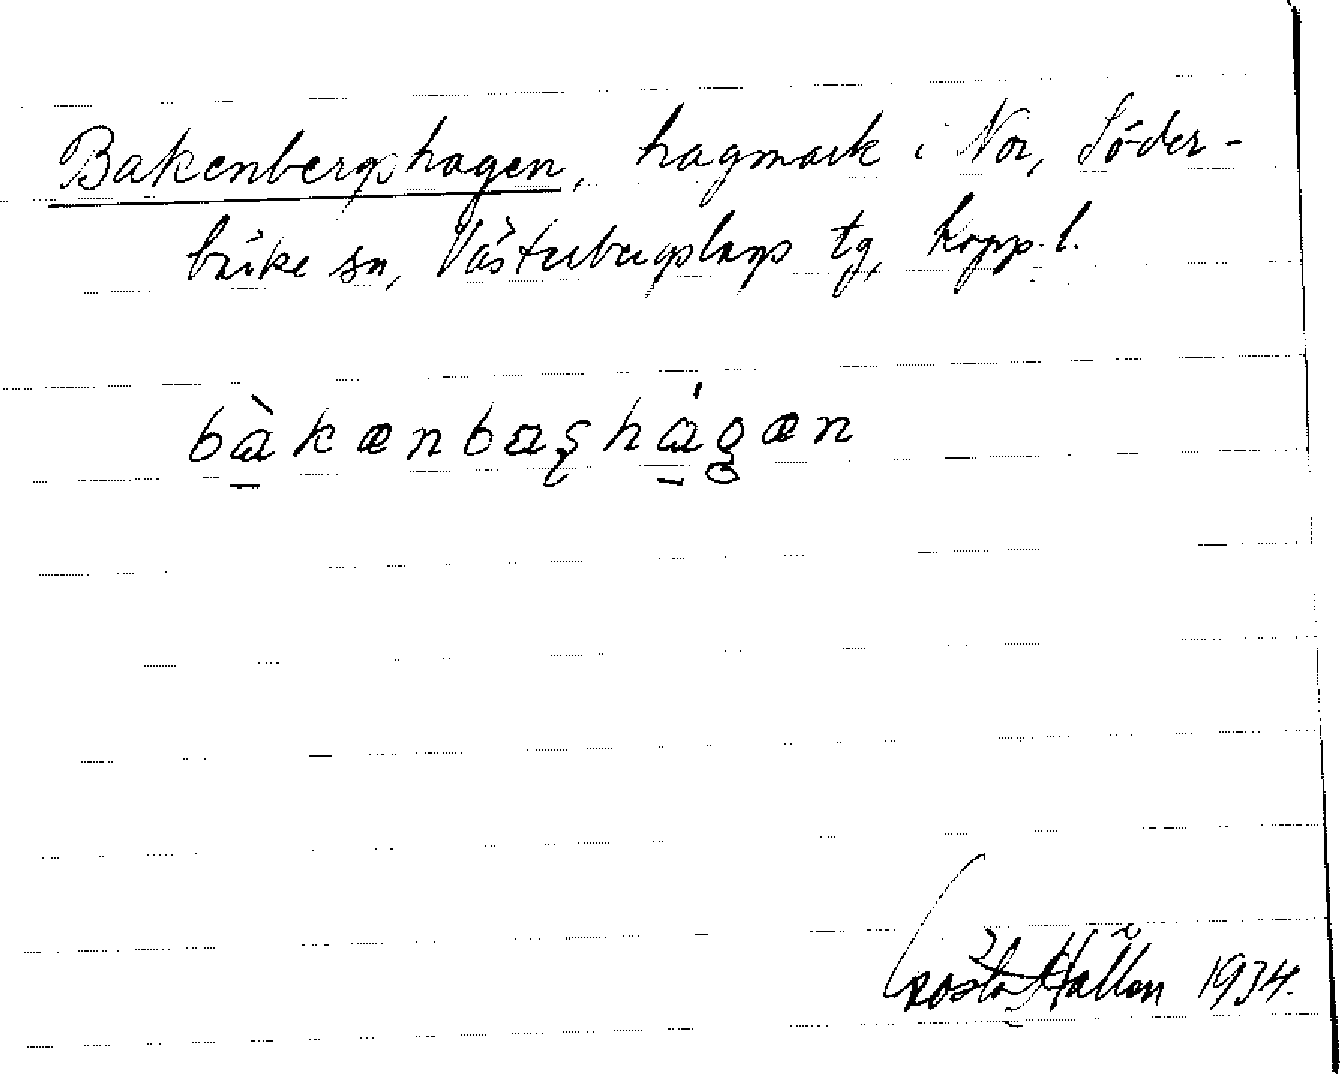 Bakenbergshagen, hagmark i Nor, Söder-
bärke sn, Västerbergslags tg, Kopp. l.
bàkænbaʂhágæn
Gösta Hallén 1934.